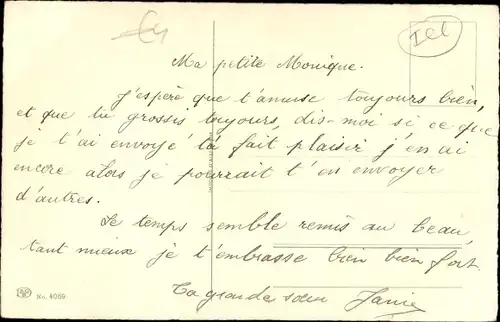 Ma petite Monique.
J'espère que t'amuse toujours bien,
et que tu grosses toujours, dis-moi si ce que
je t'ai envoyé t'a fait plaisir j'en ai
encore alors je pourrait t'en envoyer
d'autres.
Le temps semble remis au beau,
tant mieux je t'embrasse bien bien fort.
Ta grande sœur Janie
No. 4069